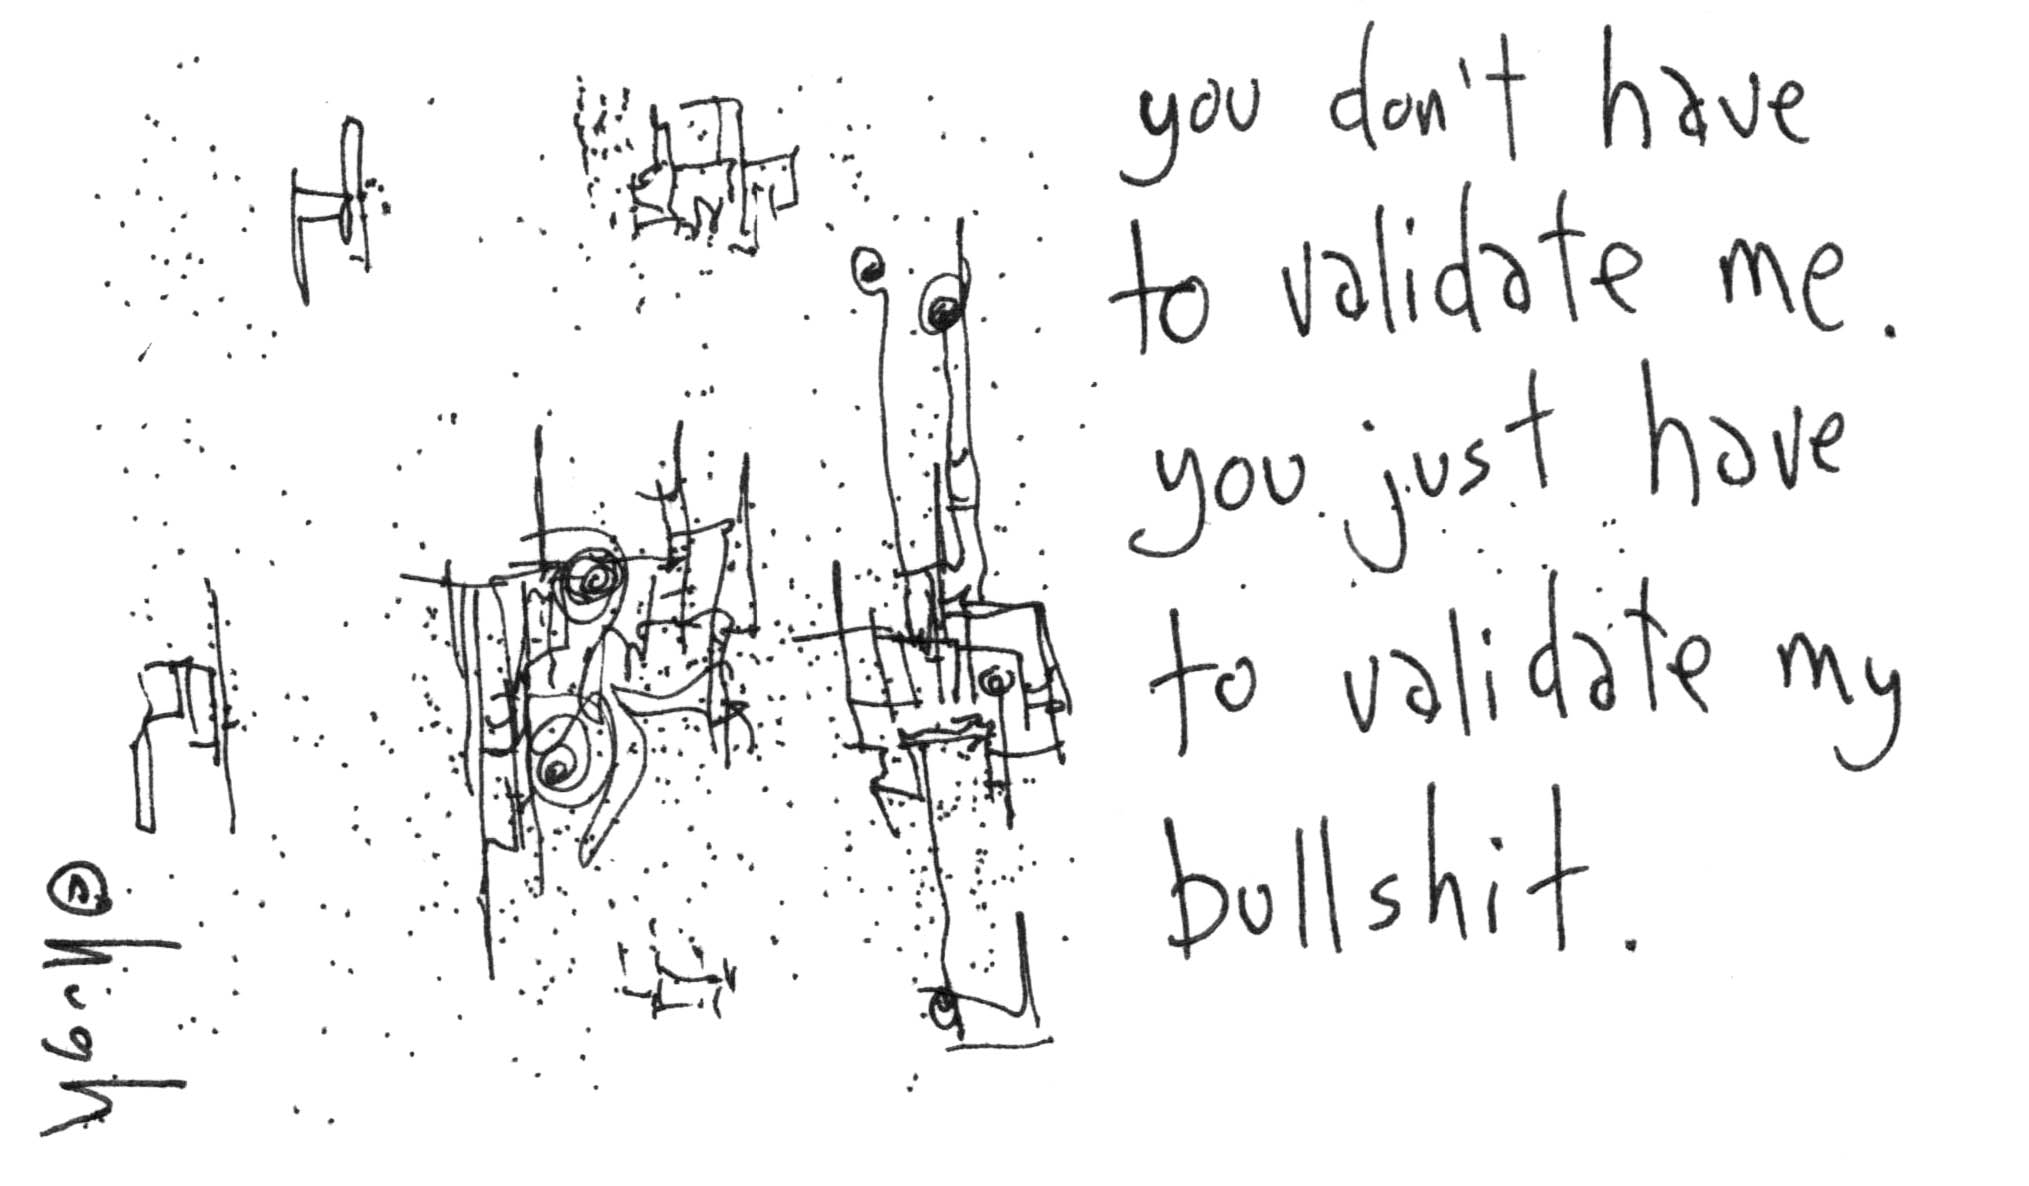 you don't have
to validate me.
you just have
to validate my
bullshit.